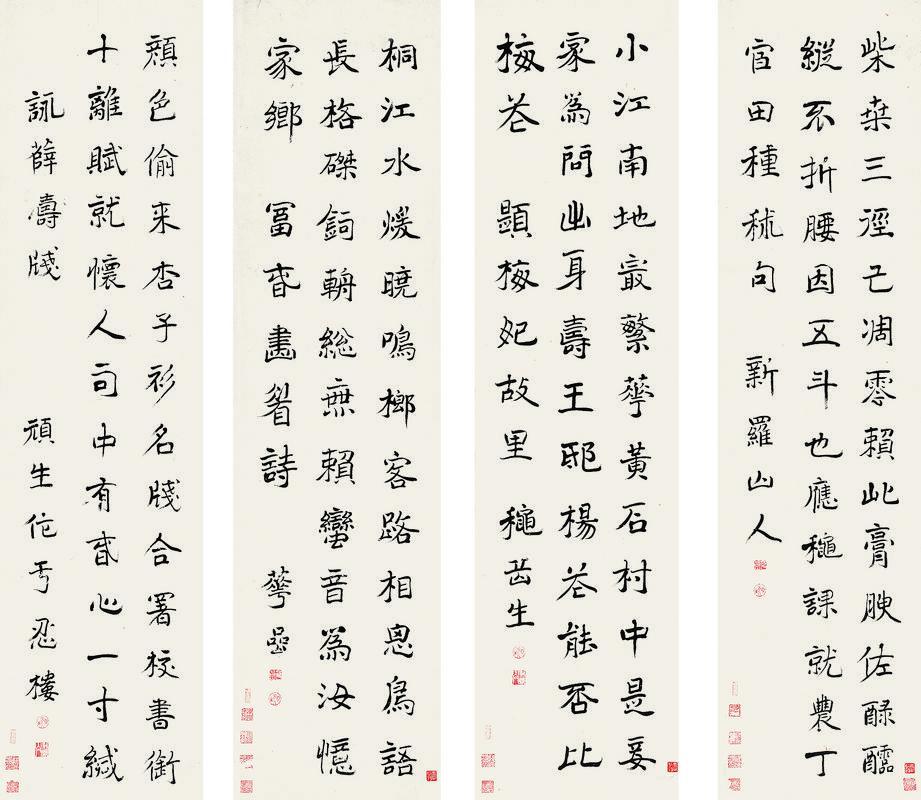 柴桑三徑已凋零賴此膏腴佐醁醽
縱不折腰因五斗也應穐課就農丁
官田種秫句 新羅山人
小江南地寂繁蕚黃石村中是妾
家為問出身壽王邸楊花能否比
梅花 題梅妃故里 穐岳生
桐江水煖曉鳴榔客路相思鳥語
長格磔鉤輈總無賴蠻音為汝憶
家鄉 冨春畫眉詩 蕚嵒
頳色偷來杏子衫名牋合署校書銜
十離賦就懷人句中有春心一寸緘
詠薛濤牋 頑生作于忍樓